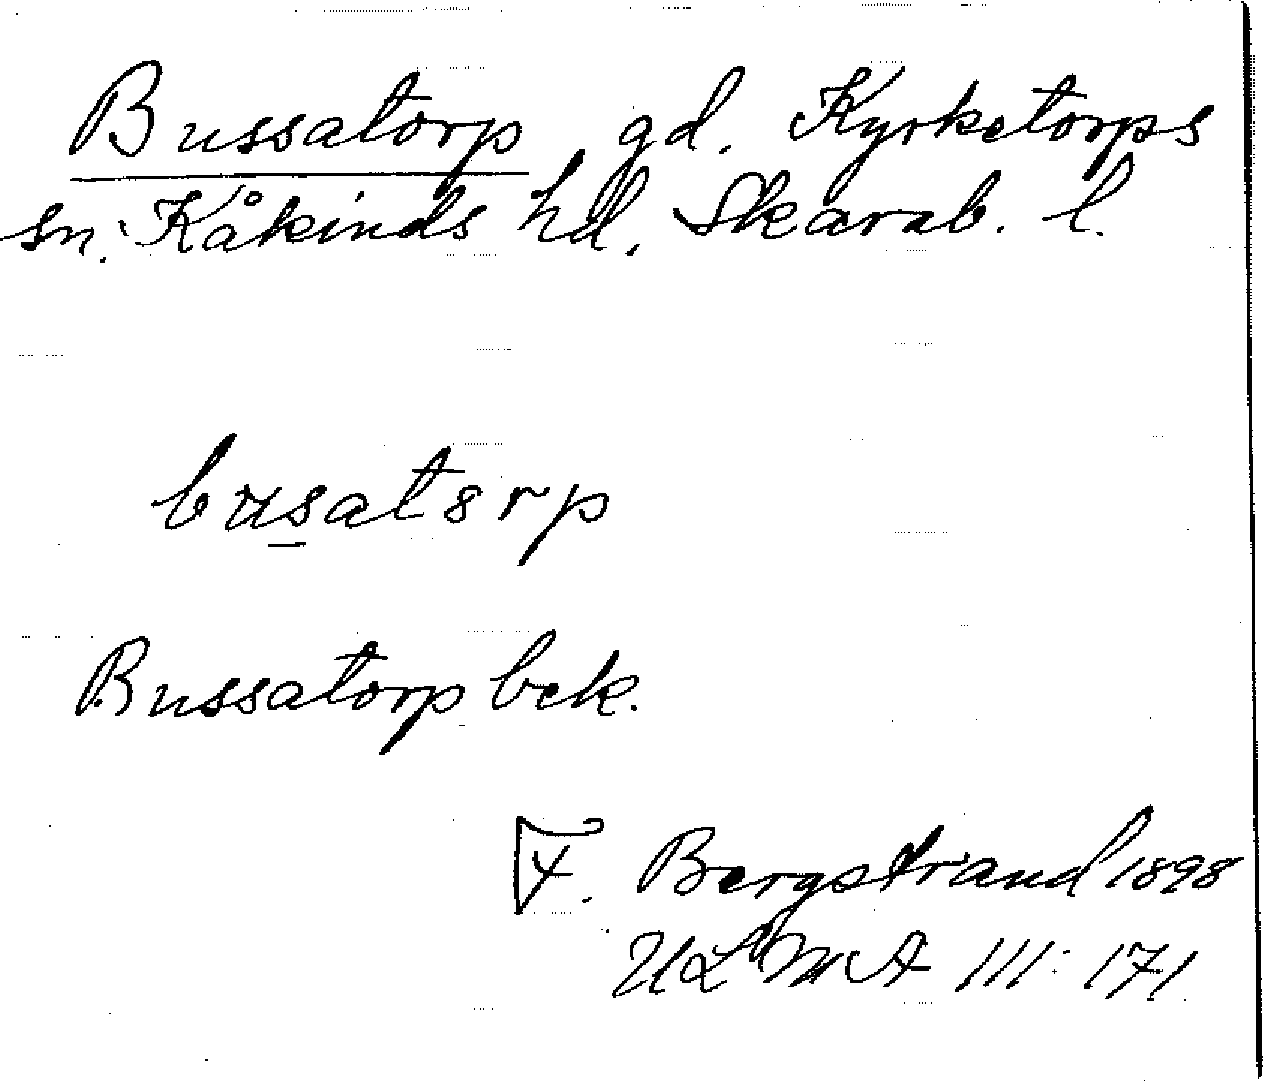 Bussatorp gd. Kyrketorps
sn. Kåkinds hd. Skarab. l.
busat8rp
Bussatorp bek.
F. Bergstrand 1898
ULMA 111:171